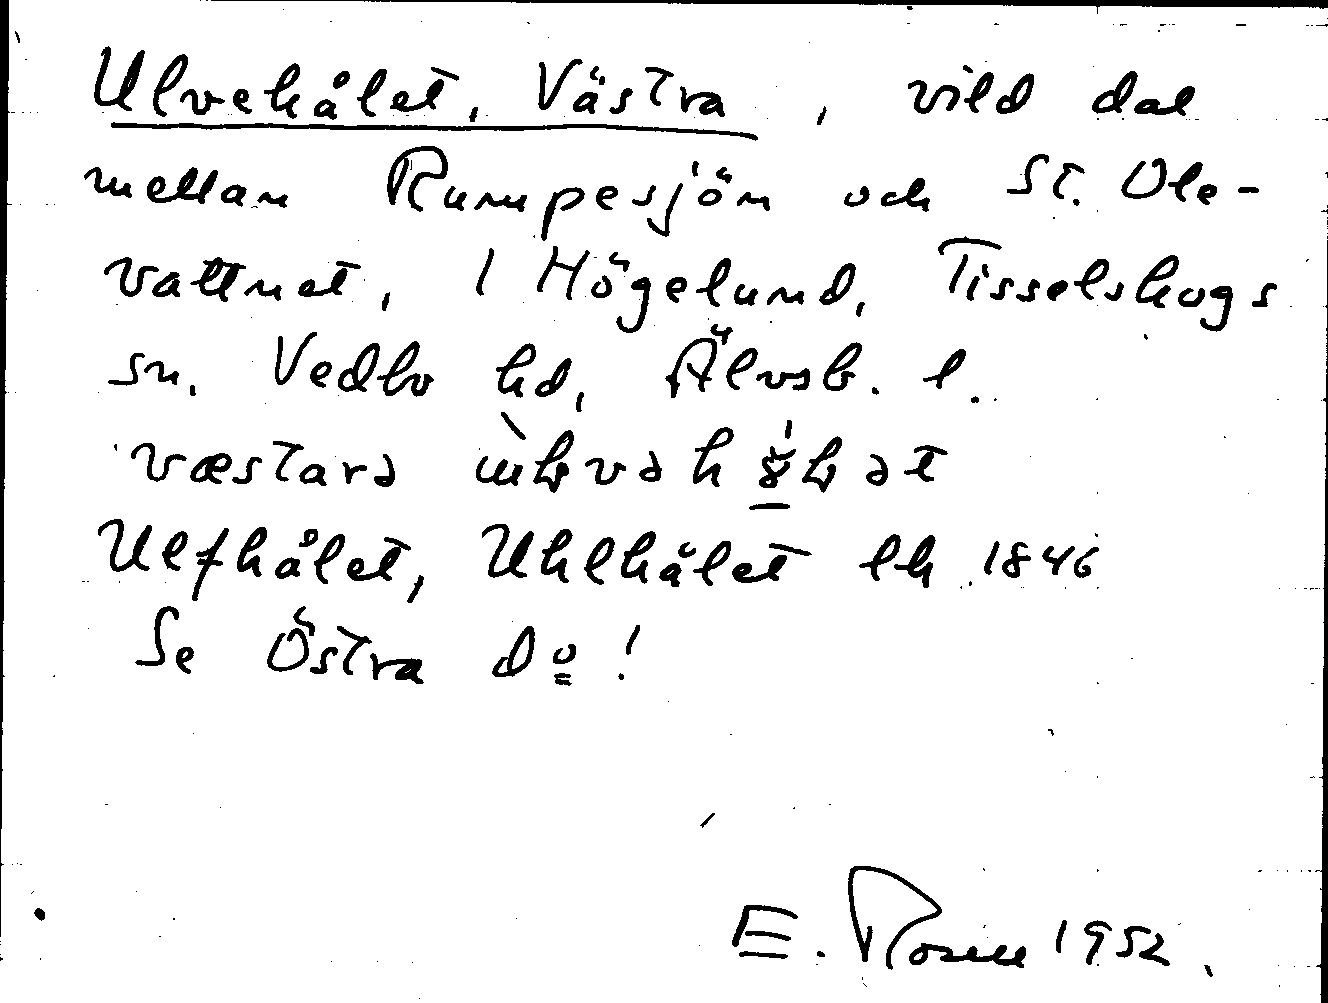 Ulvehålet, Västra, vild dal
mellan Rumpesjön och St. Ole-
vattnet, 1 Högelund, Tisselskogs
sn. Vedbo hd, Älvsb. l.
væstarə
Ulfhålet, Uhlhålet lk 1846
Se Östra do!
E. Rosell 1952.